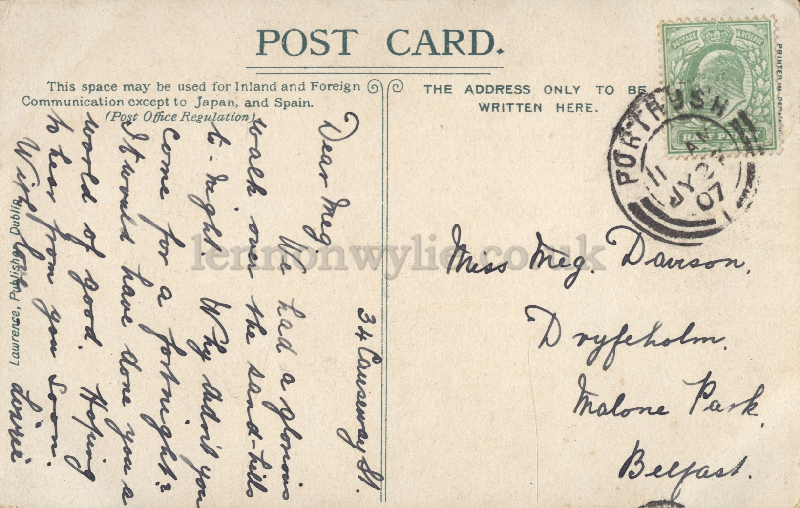 POST CARD.
This space may be used for Inland and Foreign
Communication except to Japan, and Spain.
(Post Office Regulation)
THE ADDRESS ONLY TO BE
WRITTEN HERE.
34 Causeway St.
Dear Meg,
We had a glorious
walk over the sand-hills
to-night. Why didn't you
come for a fortnight?
It would have done you a
world of good. Hoping
to hear from you soon.
With love
Lizzie
Lawrence, Publisher, Dublin
Miss Meg. Davison,
Dryfeholm,
Malone Park,
Belfast.
PORTRUSH
11
JY 2
07
PRINTED IN
POSTAGE
HALFPENNY
lennonwylie.co.uk